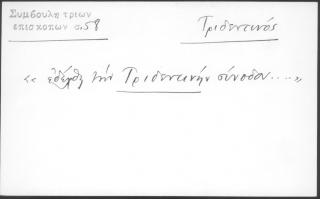 Συμβουλη τριων
επισκοπων σ.58
Τριδεντινός
«« ἐδέχθη τὴν Τριδεντινὴν σύνοδον....»